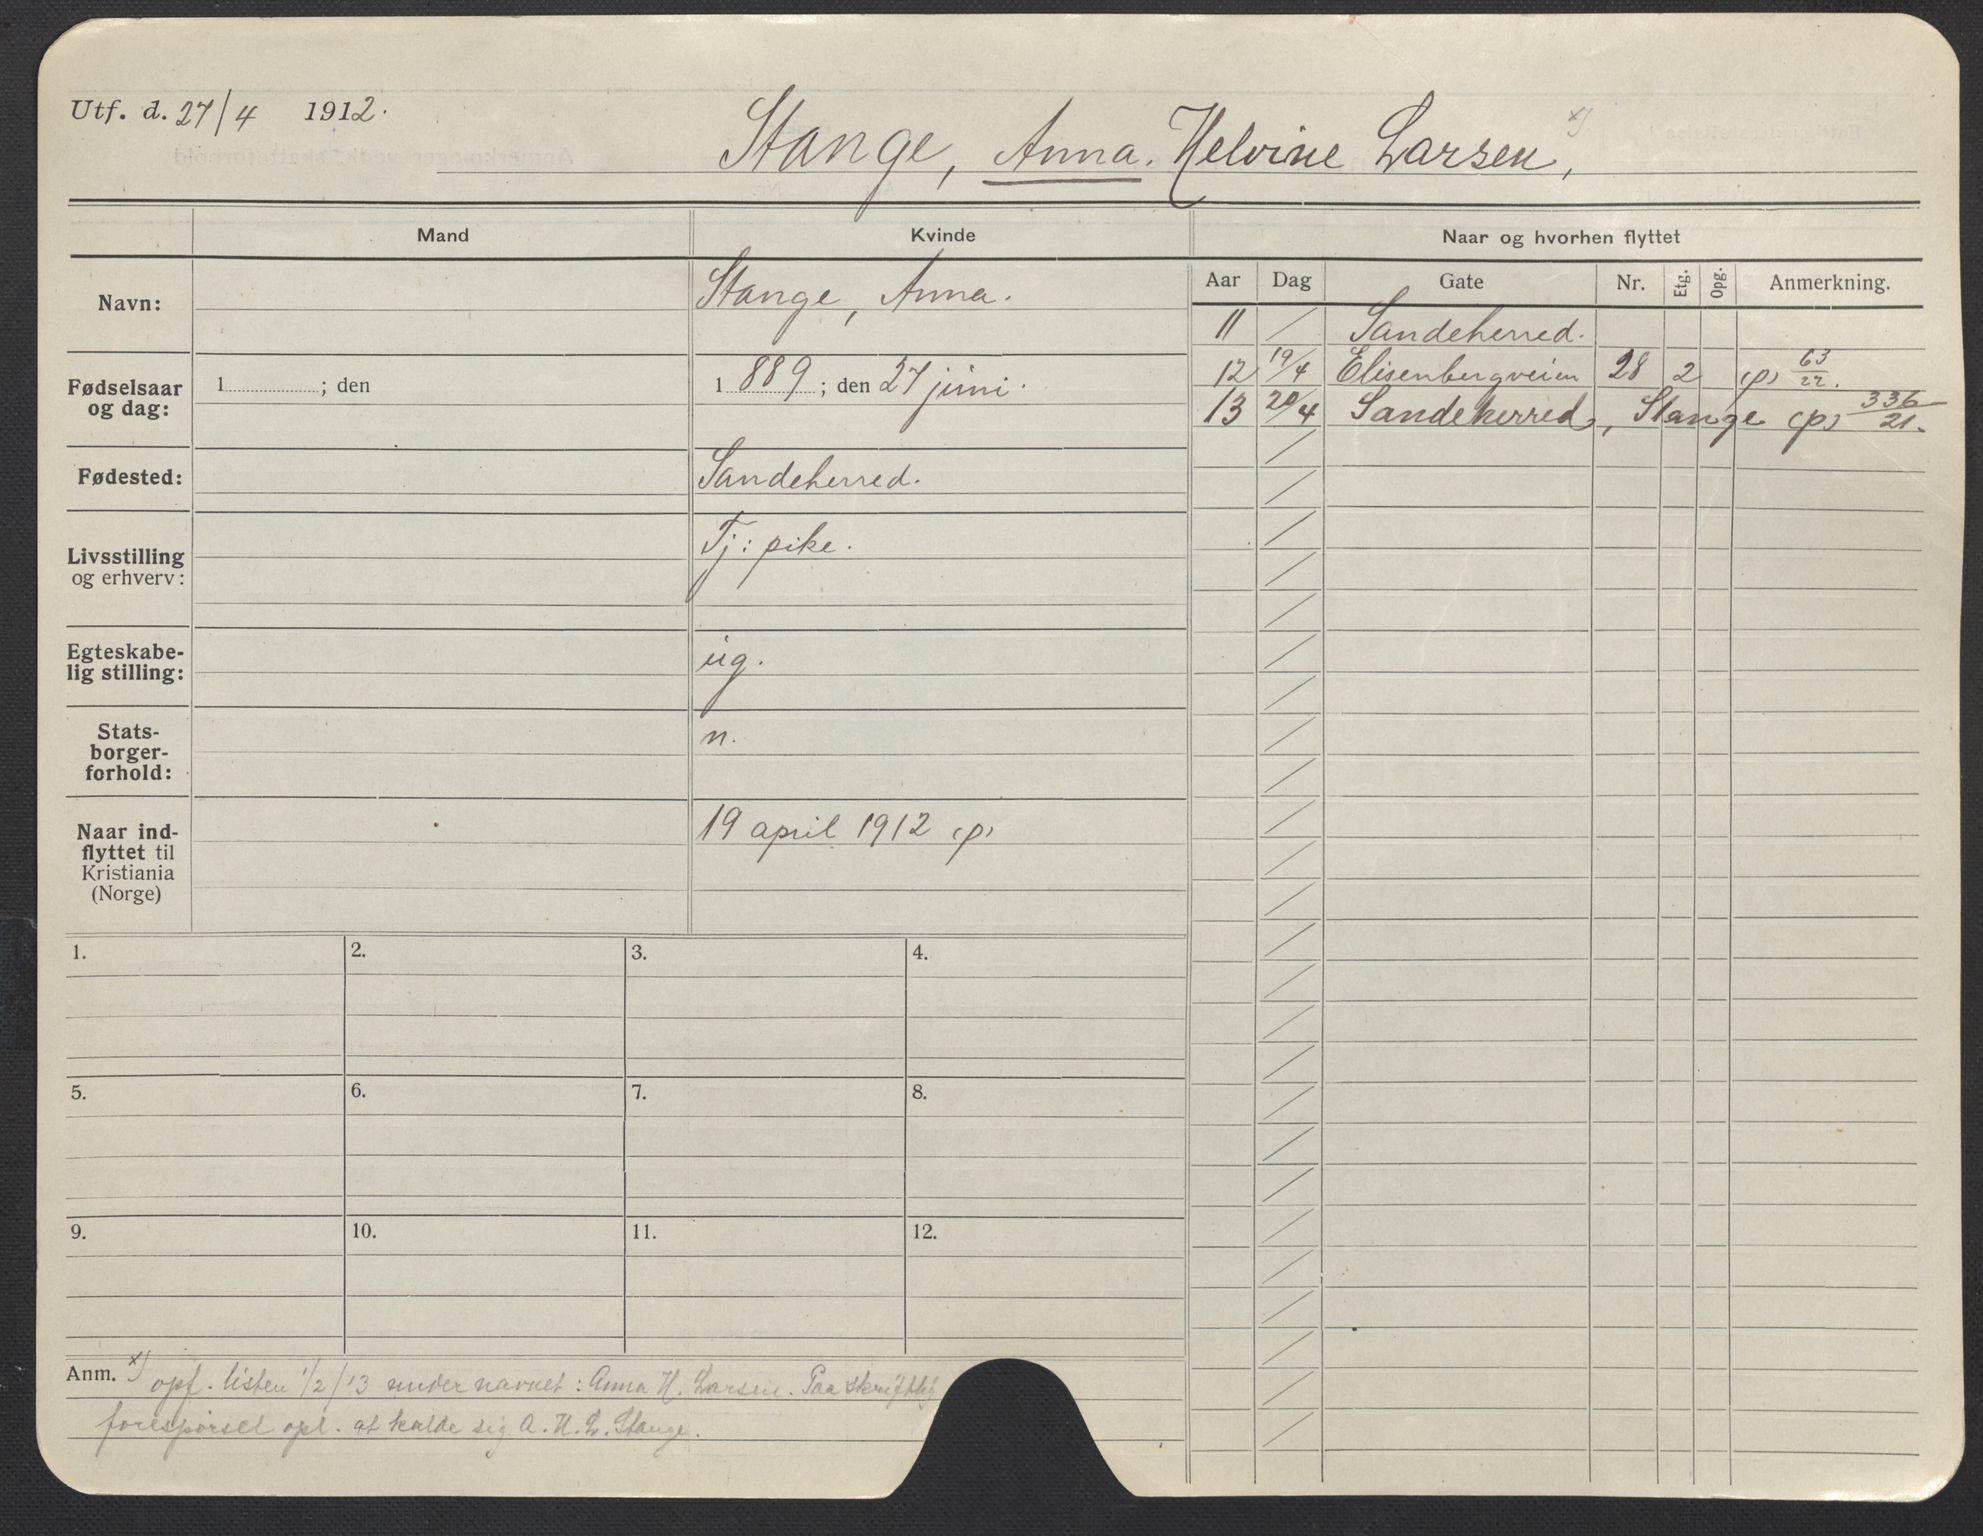 Utf. d. 27/4 1912.
Stange, Anna. Helvine Larsen, x)
Mand
Kvinde
Naar og hvorhen flyttet
Navn:
Stange, Anna.
Fødselsaar og dag:
1 ; den
1 889 ; den 27 juni.
Fødested:
Sandeherred.
Livsstilling og erhverv:
Tj: pike.
Egteskabe-
lig stilling:
ug.
Stats-
borger-
forhold:
n.
Naar ind-
flyttet til
Kristiania
(Norge)
19 april 1912 (p)
Aar Dag Gate Nr. Etg. Opg. Anmerkning.
11 Sandeherred.
12 19/4 Elisenbergveien 28 2 (p) 63/22.
13 20/4 Sandeherred, Stange (p) 336/21.
1. 2. 3. 4.
5. 6. 7. 8.
9. 10. 11. 12.
Anm. x) opf. listen 1/2/13 under navnet: Anna H. Larsen. Paa skriftlig
forespørsel opl. at kalde sig A. H. L. Stange.